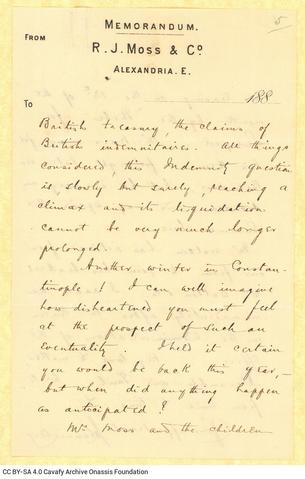 5
MEMORANDUM.
FROM
R. J. MOSS & Co
ALEXANDRIA. E.
TO
188
British treasury the claims of
British indemnitaires. All things
considered, this Indemnity question
is, slowly but surely, reaching a
climax and its liquidation
cannot be very much longer
prolonged.
Another winter in Constan-
tinople! I can well imagine
how disheartened you must feel
at the prospect of such an
Eventuality. I held it certain
you would be back this year,
but when did anything happen
as anticipated?
Mrs Moss and the children
CC BY-SA 4.0 Cavafy Archive Onassis Foundation